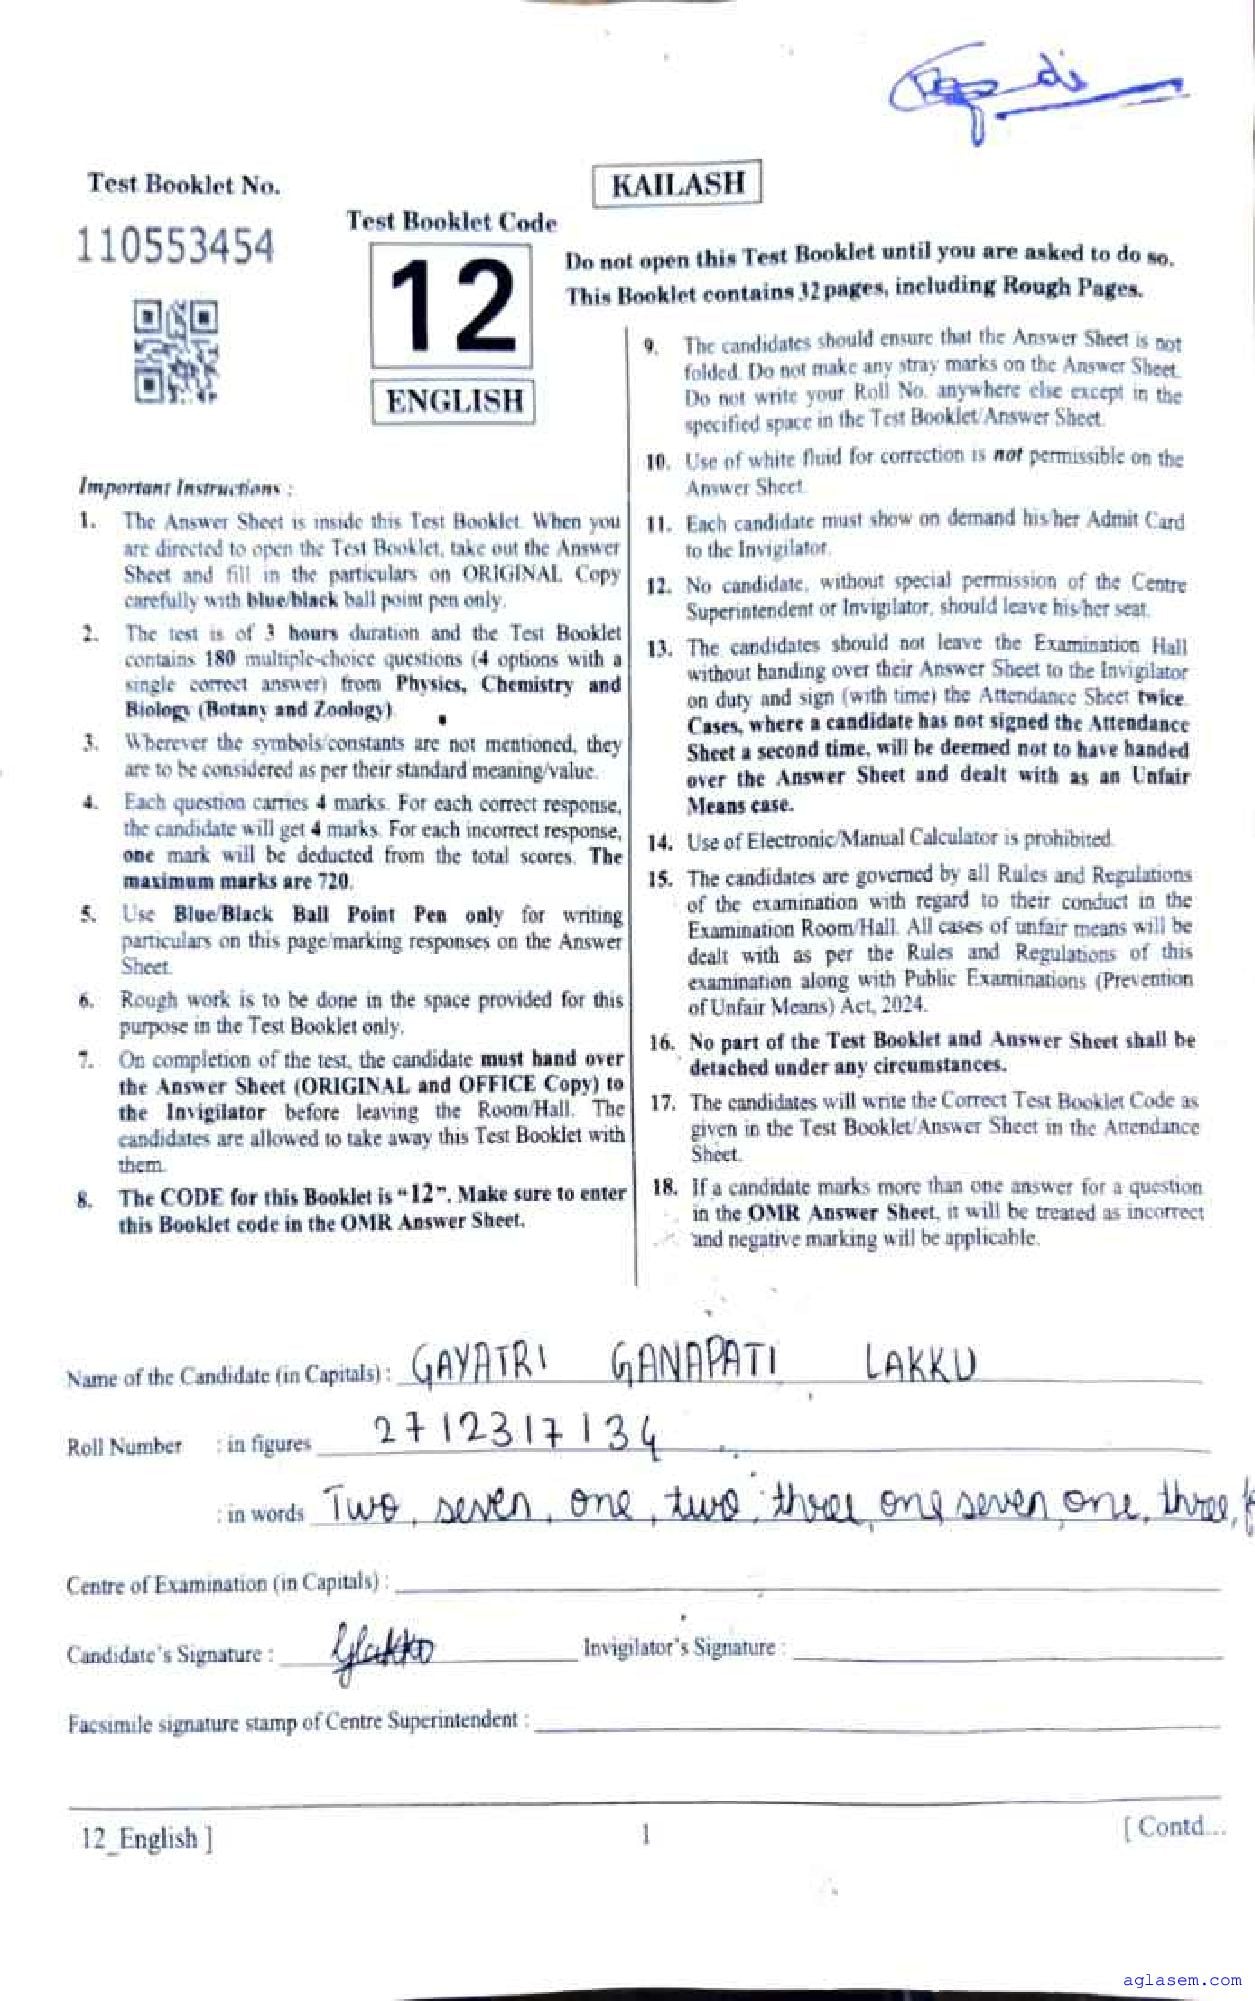 Test Booklet No.
KAILASH
110553454
Test Booklet Code
12
ENGLISH
Do not open this Test Booklet until you are asked to do so.
This Booklet contains 32 pages, including Rough Pages.
Important Instructions :
1. The Answer Sheet is inside this Test Booklet. When you
are directed to open the Test Booklet, take out the Answer
Sheet and fill in the particulars on ORIGINAL Copy
carefully with blue/black ball point pen only.
2. The test is of 3 hours duration and the Test Booklet
contains 180 multiple-choice questions (4 options with a
single correct answer) from Physics, Chemistry and
Biology (Botany and Zoology).
3. Wherever the symbols/constants are not mentioned, they
are to be considered as per their standard meaning/value.
4. Each question carries 4 marks. For each correct response,
the candidate will get 4 marks. For each incorrect response,
one mark will be deducted from the total scores. The
maximum marks are 720.
5. Use Blue/Black Ball Point Pen only for writing
particulars on this page/marking responses on the Answer
Sheet.
6. Rough work is to be done in the space provided for this
purpose in the Test Booklet only.
7. On completion of the test, the candidate must hand over
the Answer Sheet (ORIGINAL and OFFICE Copy) to
the Invigilator before leaving the Room/Hall. The
candidates are allowed to take away this Test Booklet with
them.
8. The CODE for this Booklet is "12". Make sure to enter
this Booklet code in the OMR Answer Sheet.
9. The candidates should ensure that the Answer Sheet is not
folded. Do not make any stray marks on the Answer Sheet.
Do not write your Roll No. anywhere else except in the
specified space in the Test Booklet/Answer Sheet.
10. Use of white fluid for correction is not permissible on the
Answer Sheet.
11. Each candidate must show on demand his/her Admit Card
to the Invigilator.
12. No candidate, without special permission of the Centre
Superintendent or Invigilator, should leave his/her seat.
13. The candidates should not leave the Examination Hall
without handing over their Answer Sheet to the Invigilator
on duty and sign (with time) the Attendance Sheet twice.
Cases, where a candidate has not signed the Attendance
Sheet a second time, will be deemed not to have handed
over the Answer Sheet and dealt with as an Unfair
Means case.
14. Use of Electronic/Manual Calculator is prohibited.
15. The candidates are governed by all Rules and Regulations
of the examination with regard to their conduct in the
Examination Room/Hall. All cases of unfair means will be
dealt with as per the Rules and Regulations of this
examination along with Public Examinations (Prevention
of Unfair Means) Act, 2024.
16. No part of the Test Booklet and Answer Sheet shall be
detached under any circumstances.
17. The candidates will write the Correct Test Booklet Code as
given in the Test Booklet/Answer Sheet in the Attendance
Sheet.
18. If a candidate marks more than one answer for a question
in the OMR Answer Sheet, it will be treated as incorrect
and negative marking will be applicable.
Name of the Candidate (in Capitals) : GAYATRI GANAPATI LAKKU
Roll Number : in figures 2712317134
: in words Two, seven, one, two, three, one, seven, one, three,
Centre of Examination (in Capitals) :
Candidate's Signature : Glakku Invigilator's Signature :
Facsimile signature stamp of Centre Superintendent :
12_English ] 1 [ Contd...
aglasem.com